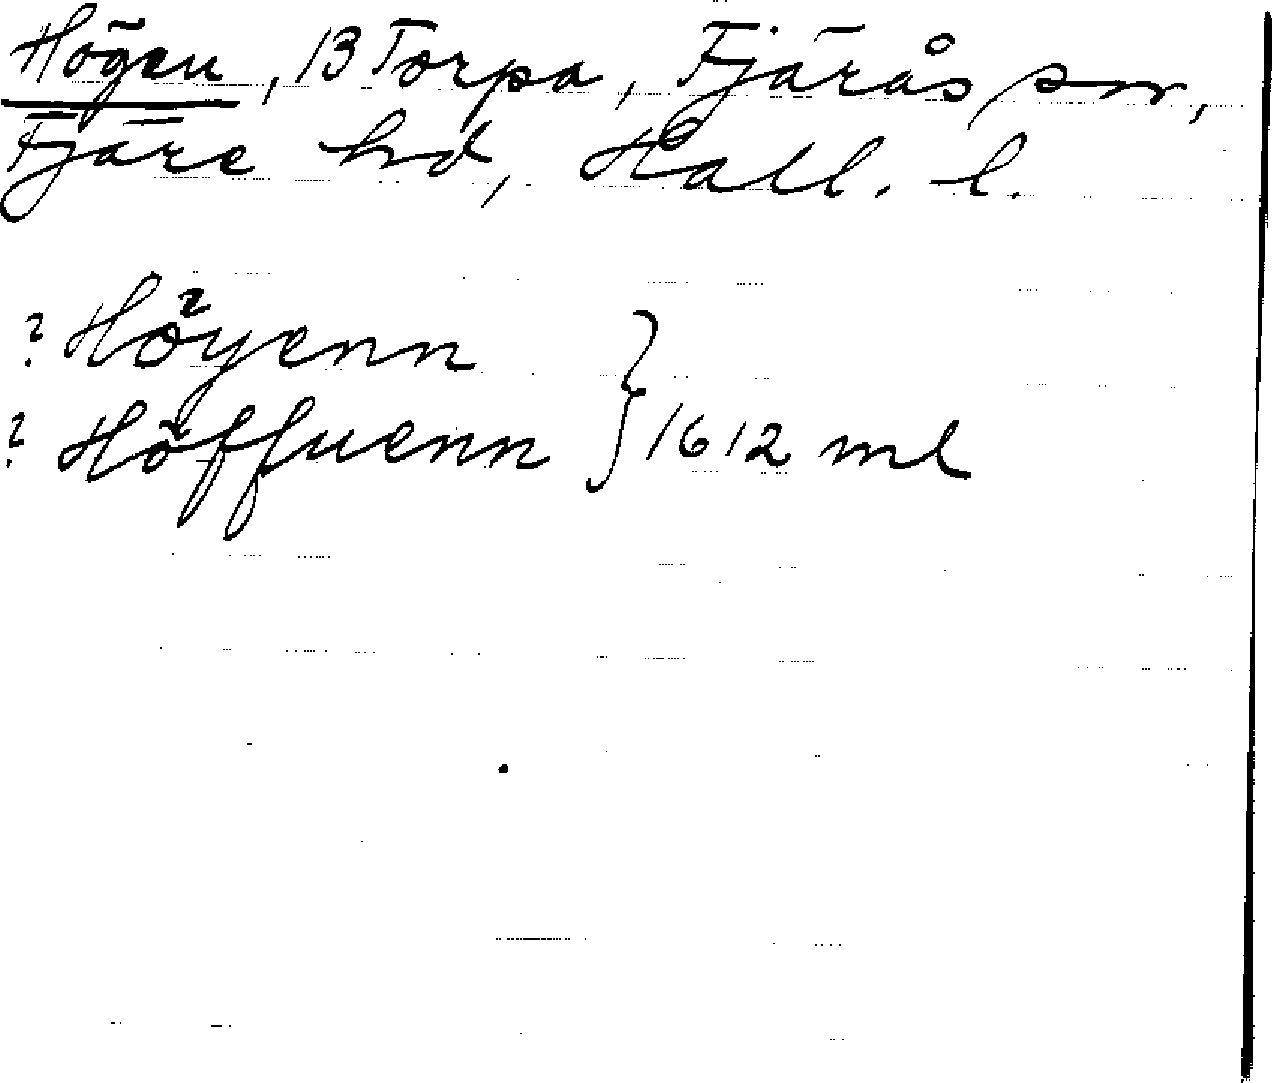 Högen, 13 Torpa, Fjärås sn,
Fjäre hd, Hall. l.
? Höyenn
? Höffuenn } 1612 ml